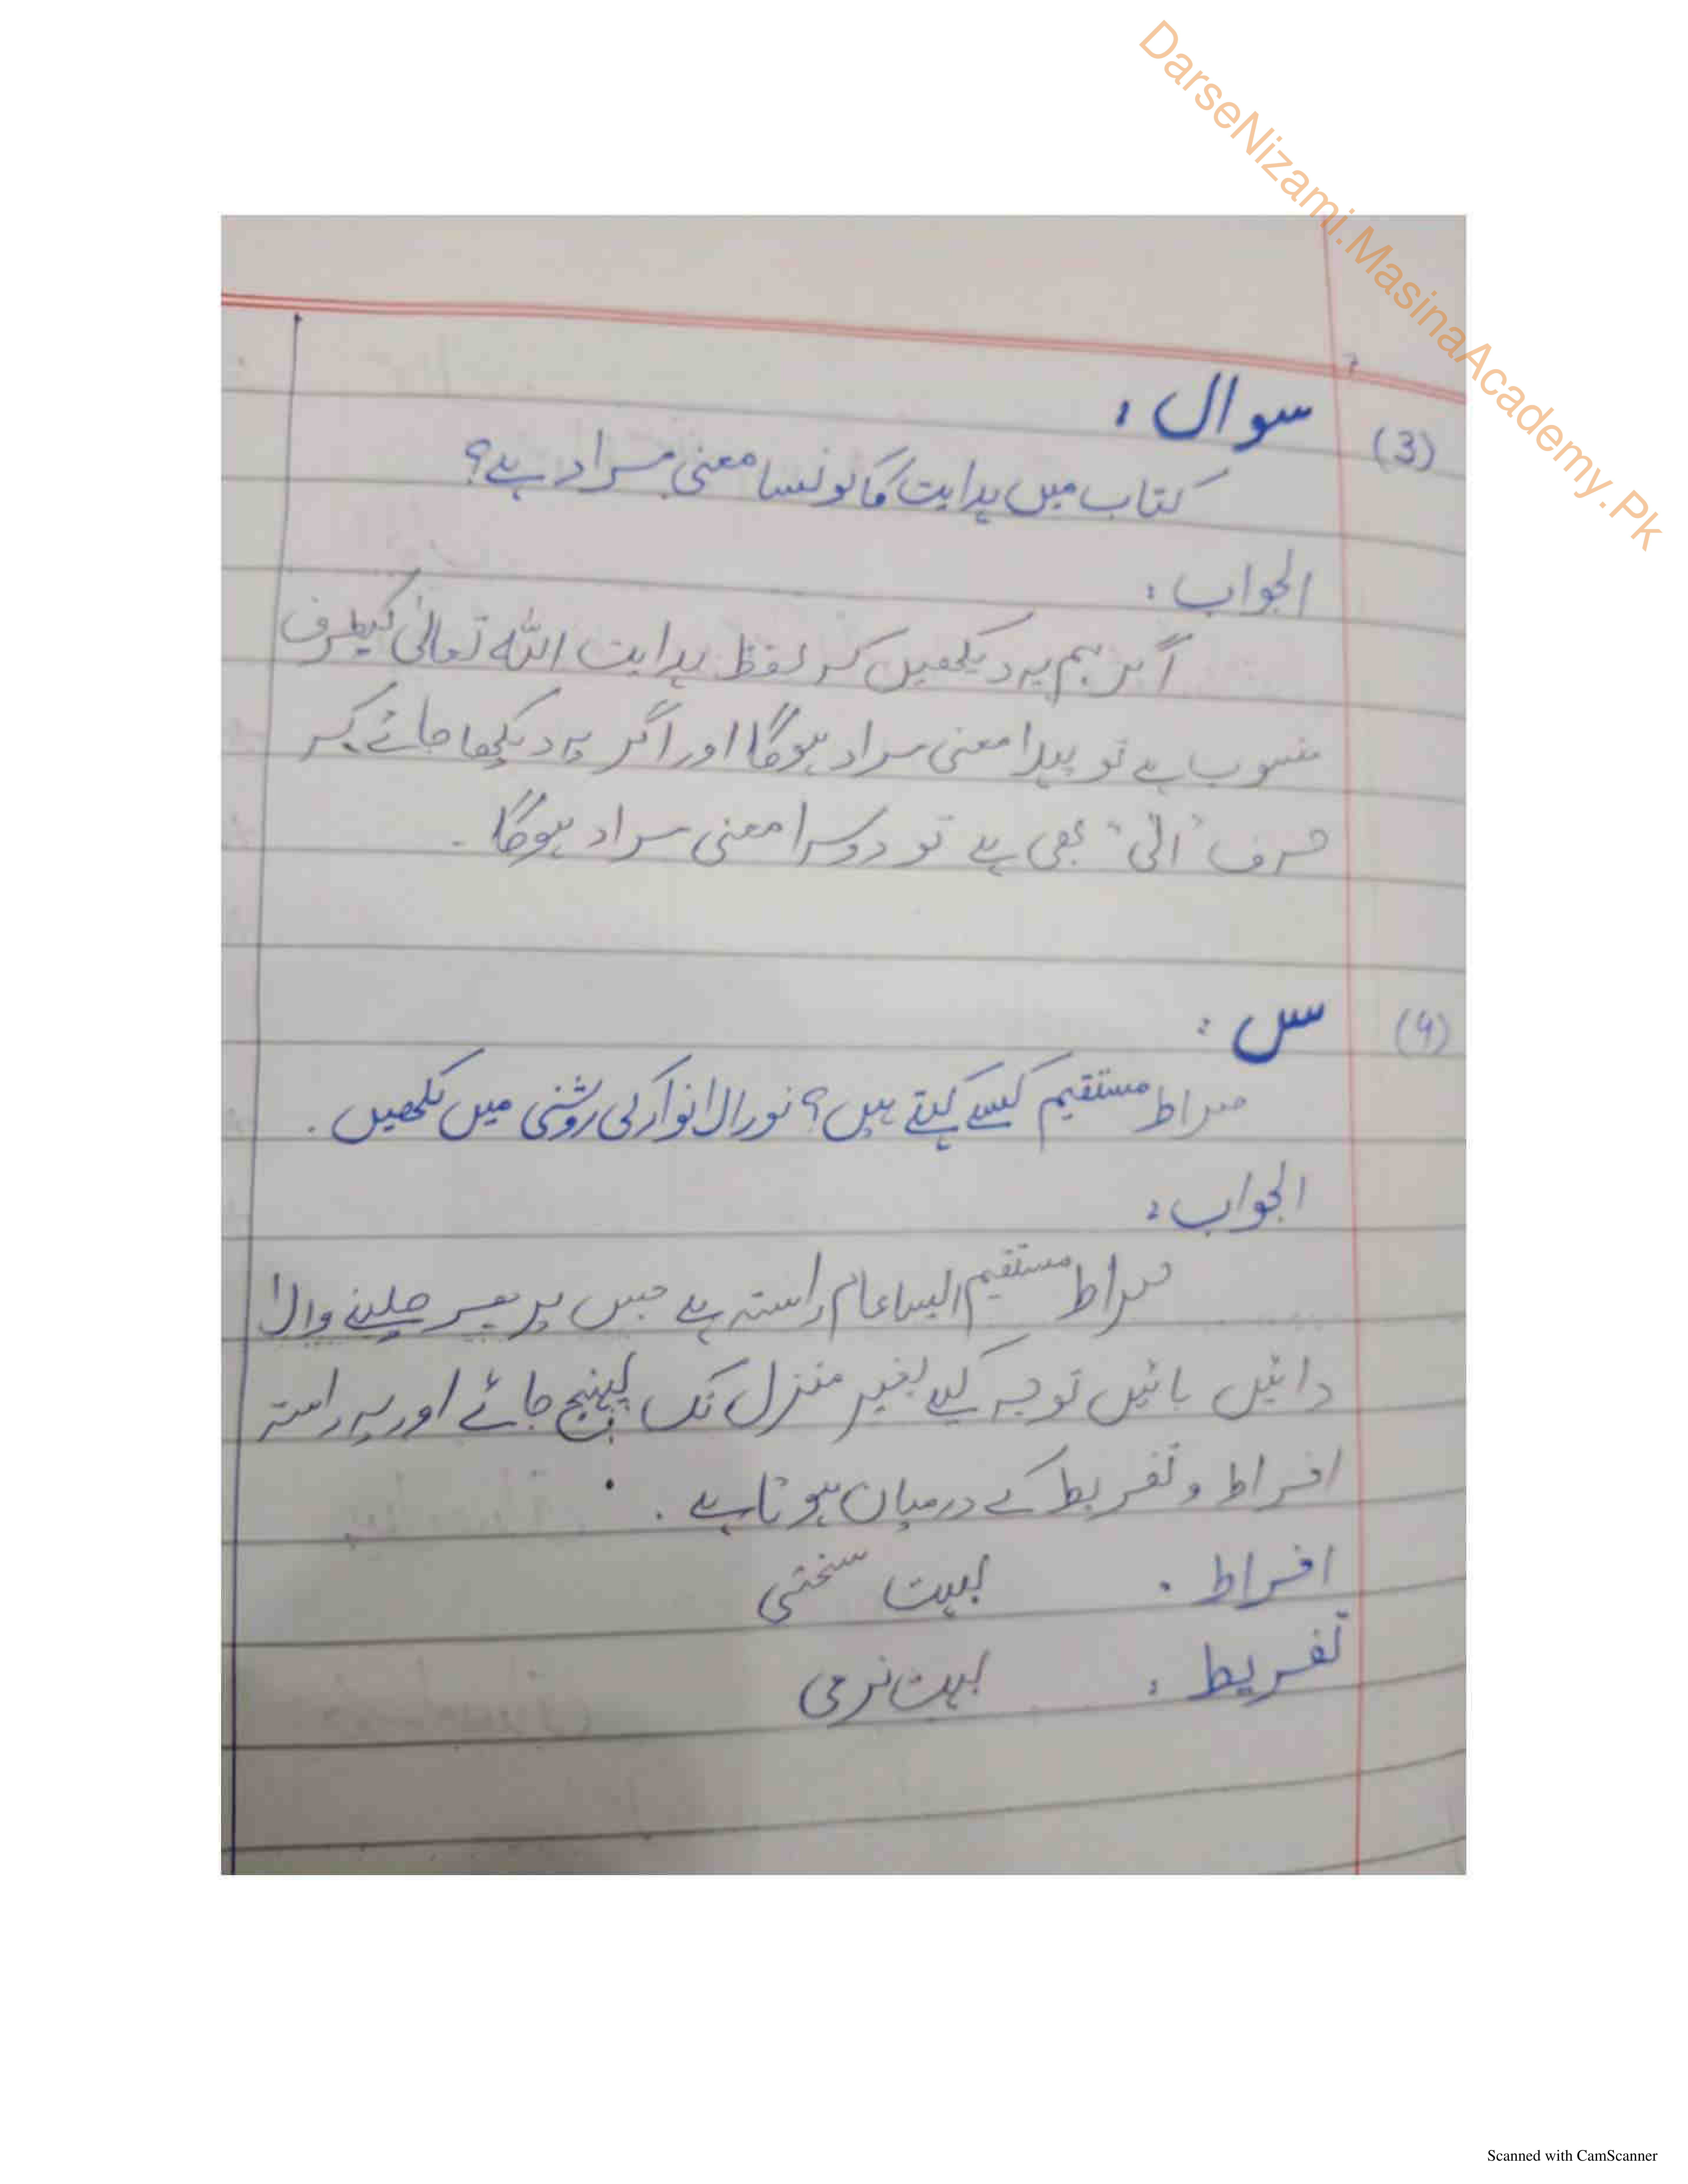 DarseNizami.MasinaAcademy.Pk
(3) سوال :
کتاب میں ہدایت کا کونسا معنی مراد ہے؟
الجواب :
اگر ہم یہ دیکھیں کہ لفظ ہدایت اللہ تعالیٰ کیطرف
منسوب ہے تو پہلا معنی مراد ہوگا اور اگر یہ دیکھا جائے کہ
حرف "الی" بھی ہے تو دوسرا معنی مراد ہوگا۔
(4) س :
صراط مستقیم کسے کہتے ہیں؟ نور الانوار کی روشنی میں لکھیں۔
الجواب :
صراط مستقیم ایسا عام راستہ ہے جس پر ہر چلنے والا
دائیں بائیں توجہ کیے بغیر منزل تک پہنچ جائے اور یہ راستہ
افراط و تفریط کے درمیان ہوتا ہے۔
افراط . بہت سختی
تفریط : بہت نرمی
Scanned with CamScanner